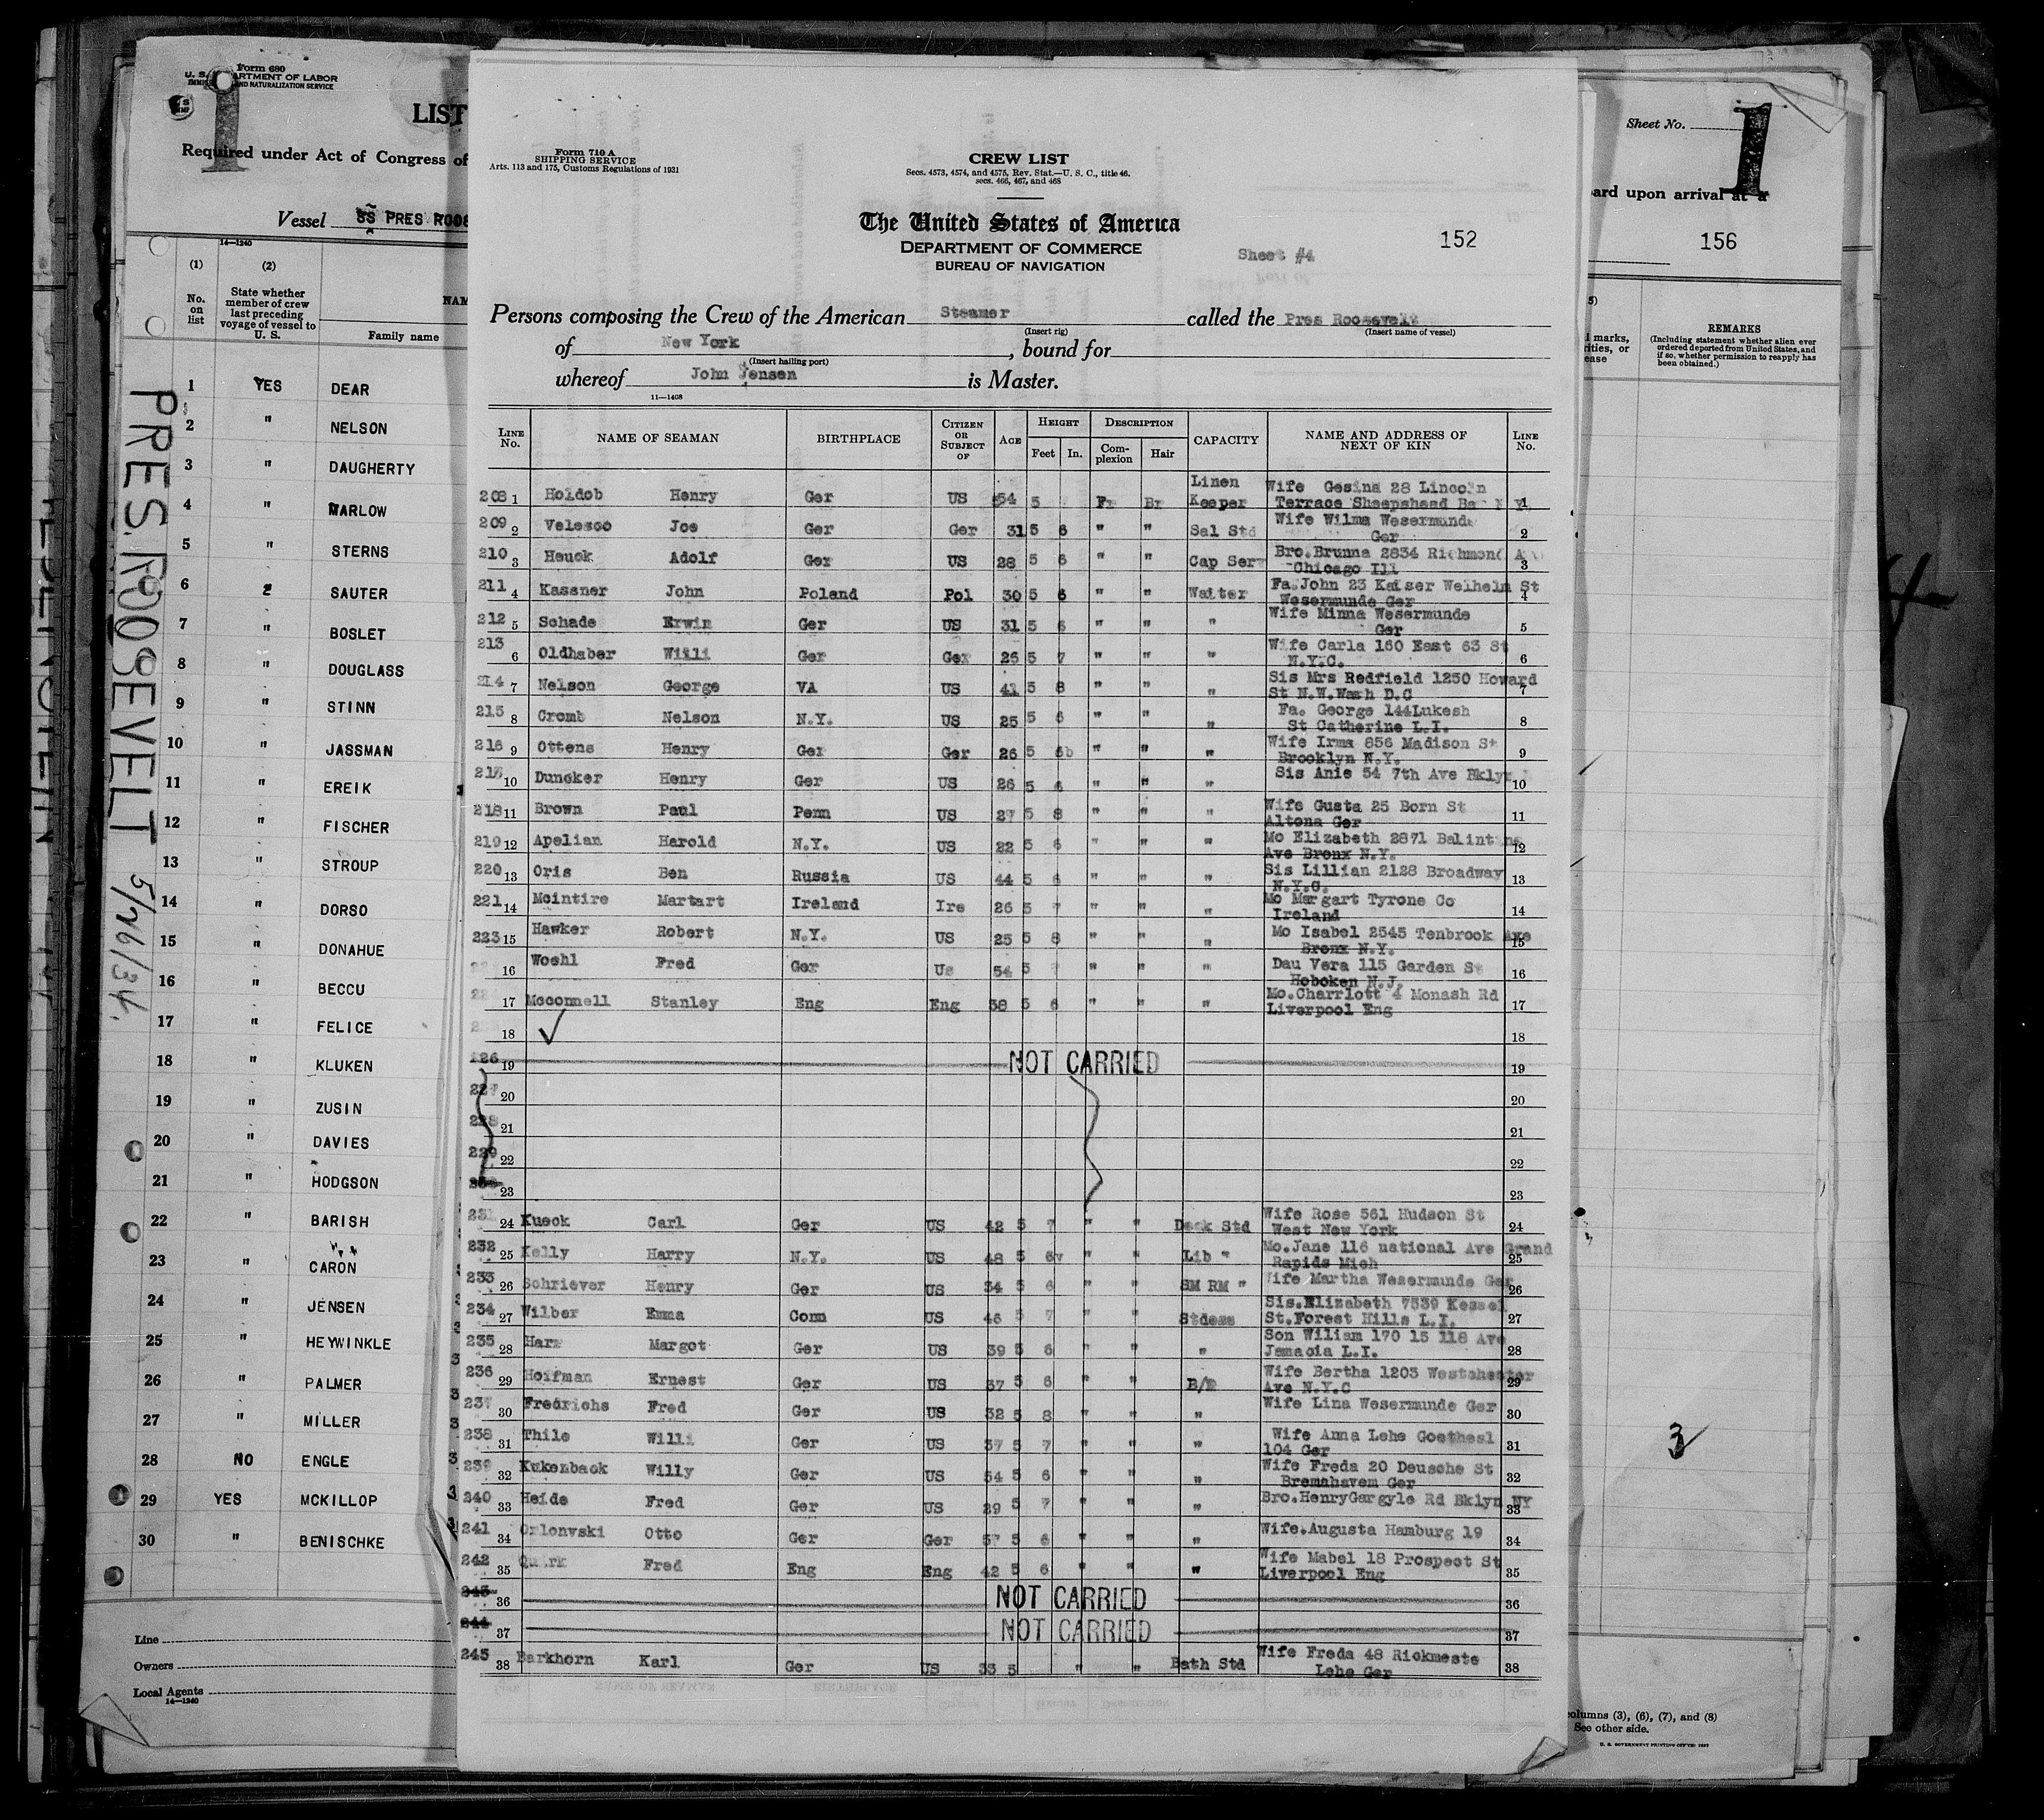 Form 680
U. S. DEPARTMENT OF LABOR
IMMIGRATION AND NATURALIZATION SERVICE
1
LIST
Required under Act of Congress of
Vessel SS PRES ROOSE
14—1240
(1) (2)
No. on list
State whether member of crew last preceding voyage of vessel to U. S.
NAM
Family name
1 YES DEAR
2 " NELSON
3 " DAUGHERTY
4 " MARLOW
5 " STERNS
6 " SAUTER
7 " BOSLET
8 " DOUGLASS
9 " STINN
10 " JASSMAN
11 " EREIK
12 " FISCHER
13 " STROUP
14 " DORSO
15 " DONAHUE
16 " BECCU
17 " FELICE
18 " KLUKEN
19 " ZUSIN
20 " DAVIES
21 " HODGSON
22 " BARISH
23 " CARON
24 " JENSEN
25 " HEYWINKLE
26 " PALMER
27 " MILLER
28 NO ENGLE
29 YES MCKILLOP
30 " BENISCHKE
Line
Owners
Local Agents
14—1240
PRES. ROOSEVELT 5/26/34.
Form 710 A
SHIPPING SERVICE
Arts. 113 and 175, Customs Regulations of 1931
CREW LIST
Secs. 4573, 4574, and 4575, Rev. Stat.—U. S. C., title 46.
secs. 466, 467, and 468
The United States of America
DEPARTMENT OF COMMERCE
BUREAU OF NAVIGATION
Sheet #4
152
Persons composing the Crew of the American Steamer called the Pres Roosevelt
(Insert rig) (Insert name of vessel)
of New York, bound for
(Insert hailing port)
whereof John Jensen is Master.
11—1408
LINE No. NAME OF SEAMAN BIRTHPLACE CITIZEN OR SUBJECT OF AGE HEIGHT Feet In. DESCRIPTION Complexion Hair CAPACITY NAME AND ADDRESS OF NEXT OF KIN LINE No.
208 1 Holdob Henry Ger US 54 5 Fr Br Linen Keeper Wife Gesina 28 Lincoln Terrace Sheepshead Ba N Y 1
209 2 Velesco Joe Ger Ger 31 5 6 " " Sal Std Wife Wilma Wesermunde Ger 2
210 3 Heuck Adolf Ger US 28 5 6 " " Cap Ser Bro.Brunna 2834 Richmond Chicago Ill 3
211 4 Kassner John Poland Pol 30 5 6 " " Waiter Fa.John 23 Kaiser Welhelm St Wesermunde Ger 4
212 5 Schade Erwin Ger US 31 5 6 " " " Wife Minna Wesermunde Ger 5
213 6 Oldhaber Willi Ger Ger 26 5 7 " " " Wife Carla 160 East 63 St N.Y.C. 6
214 7 Nelson George VA US 41 5 8 " " " Sis Mrs Redfield 1250 Howard St N.W.Wash D.C 7
215 8 Cromb Nelson N.Y. US 25 5 6 " " " Fa. George 144Lukesh St Catherine L.I. 8
216 9 Ottens Henry Ger Ger 26 5 6b " " " Wife Irma 856 Madison St Brooklyn N.Y. 9
10 Duncker Henry Ger US 26 5 6 " " " Sis Anie 54 7th Ave Bklyn 10
218 11 Brown Paul Penn US 27 5 8 " " " Wife Gusta 25 Born St Altona Ger 11
219 12 Apelian Harold N.Y. US 22 5 6 " " " Mo Elizabeth 2871 Balint Ave Bronx N.Y. 12
220 13 Oris Ben Russia US 44 5 6 " " " Sis Lillian 2128 Broadway N.Y.C. 13
221 14 Mcintire Martart Ireland Ire 26 5 7 " " " Mo Margart Tyrone Co Ireland 14
223 15 Hawker Robert N.Y. US 25 5 8 " " " Mo Isabel 2545 Tenbrook Ave Bronx N.Y. 15
16 Woehl Fred Ger Us 54 5 " " " Dau Vera 115 Garden St Hoboken N.J. 16
17 Mcconnell Stanley Eng Eng 38 5 6 " " " Mo.Charrlott 4 Monash Rd Liverpool Eng 17
18 ✓ 18
226 19 NOT CARRIED 19
227 20 20
228 21 21
229 22 22
23 23
231 24 Kueck Carl Ger US 42 5 7 " " Deck Std Wife Rose 561 Hudson St West New York 24
232 25 Kelly Harry N.Y. US 48 5 6v " " Lib " Mo.Jane 116 national Ave Grand Rapids Mich 25
233 26 Schriever Henry Ger US 34 5 6 " " SM RM " Wife Martha Wesermunde Ger 26
234 27 Wilber Emma Conn US 46 5 7 " " Stdess Sis.Elizabeth 7539 Kessel St.Forest Hills L.I. 27
235 28 Harz Margot Ger US 39 5 6 " " " Son Wiliam 170 15 118 Ave Jamacia L.I. 28
236 29 Hoffman Ernest Ger US 37 5 6 " " B/R Wife Bertha 1203 Westchester Ave N.Y.C 29
237 30 Fredrichs Fred Ger US 32 5 8 " " " Wife Lina Wesermunde Ger 30
238 31 Thile Willi Ger US 37 5 7 " " " Wife Anna Lehe Goethesl 104 Ger 31
239 32 Kukenback Willy Ger US 54 5 6 " " " Wife Freda 20 Deusche St Bremahavem Ger 32
240 33 Heide Fred Ger US 29 5 7 " " " Bro.HenryGargyle Rd Bklyn NY 33
241 34 Orlonvski Otto Ger Ger 57 5 6 " " " Wife.Augusta Hamburg 19 34
242 35 Quirk Fred Eng Eng 42 5 6 " " " Wife Mabel 18 Prospect St Liverpool Eng 35
243 36 NOT CARRIED 36
244 37 NOT CARRIED 37
245 38 Barkhorn Karl Ger US 33 5 " " Bath Std Wife Freda 48 Rickmeste Lehe Ger 38
Sheet No. 1
ard upon arrival at a
156
l marks,
rities, or
ease
REMARKS
(Including statement whether alien ever ordered deported from United States, and if so, whether permission to reapply has been obtained.)
3
columns (3), (6), (7), and (8)
See other side.